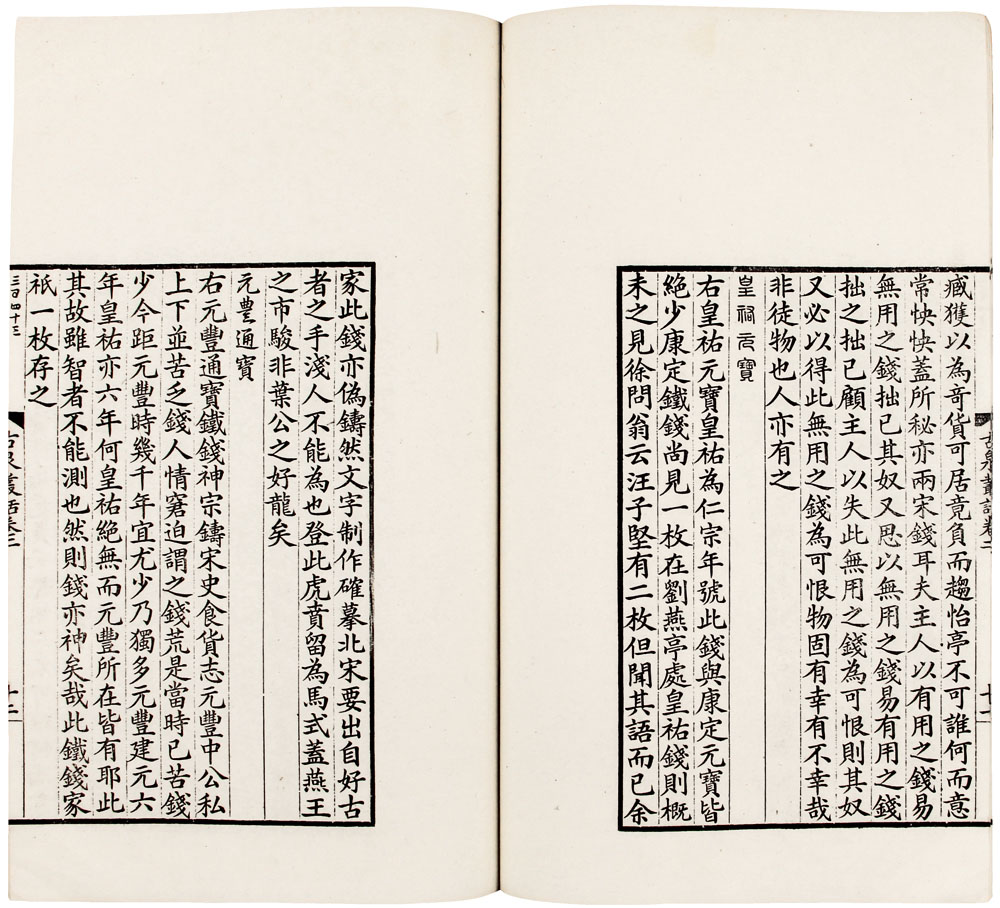 古泉叢話卷二
臧獲以為奇貨可居竟負而趨怡亭不可誰何而意
常怏怏蓋所秘亦兩宋錢耳夫主人以有用之錢易
無用之錢拙已其奴又思以無用之錢易有用之錢
拙之拙已顧主人以失此無用之錢為可恨則其奴
又必以得此無用之錢為可恨物固有幸有不幸哉
非徒物也人亦有之
皇祐元寶
右皇祐元寶皇祐為仁宗年號此錢與康定元寶皆
絕少康定鐵錢尚見一枚在劉燕亭處皇祐錢則概
未之見徐問翁云汪子堅有二枚但聞其語而已余
家此錢亦偽鑄然文字制作確摹北宋要出自好古
者之手淺人不能為也登此虎賁留為馬式蓋燕王
之市駿非葉公之好龍矣
元豐通寶
右元豐通寶鐵錢神宗鑄宋史食貨志元豐中公私
上下並苦乏錢人情窘迫謂之錢荒是當時已苦錢
少今距元豐時幾千年宜尤少乃獨多元豐建元六
年皇祐亦六年何皇祐絕無而元豐所在皆有耶此
其故雖智者不能測也然則錢亦神矣哉此鐵錢家
祇一枚存之
古泉叢話卷二
十二